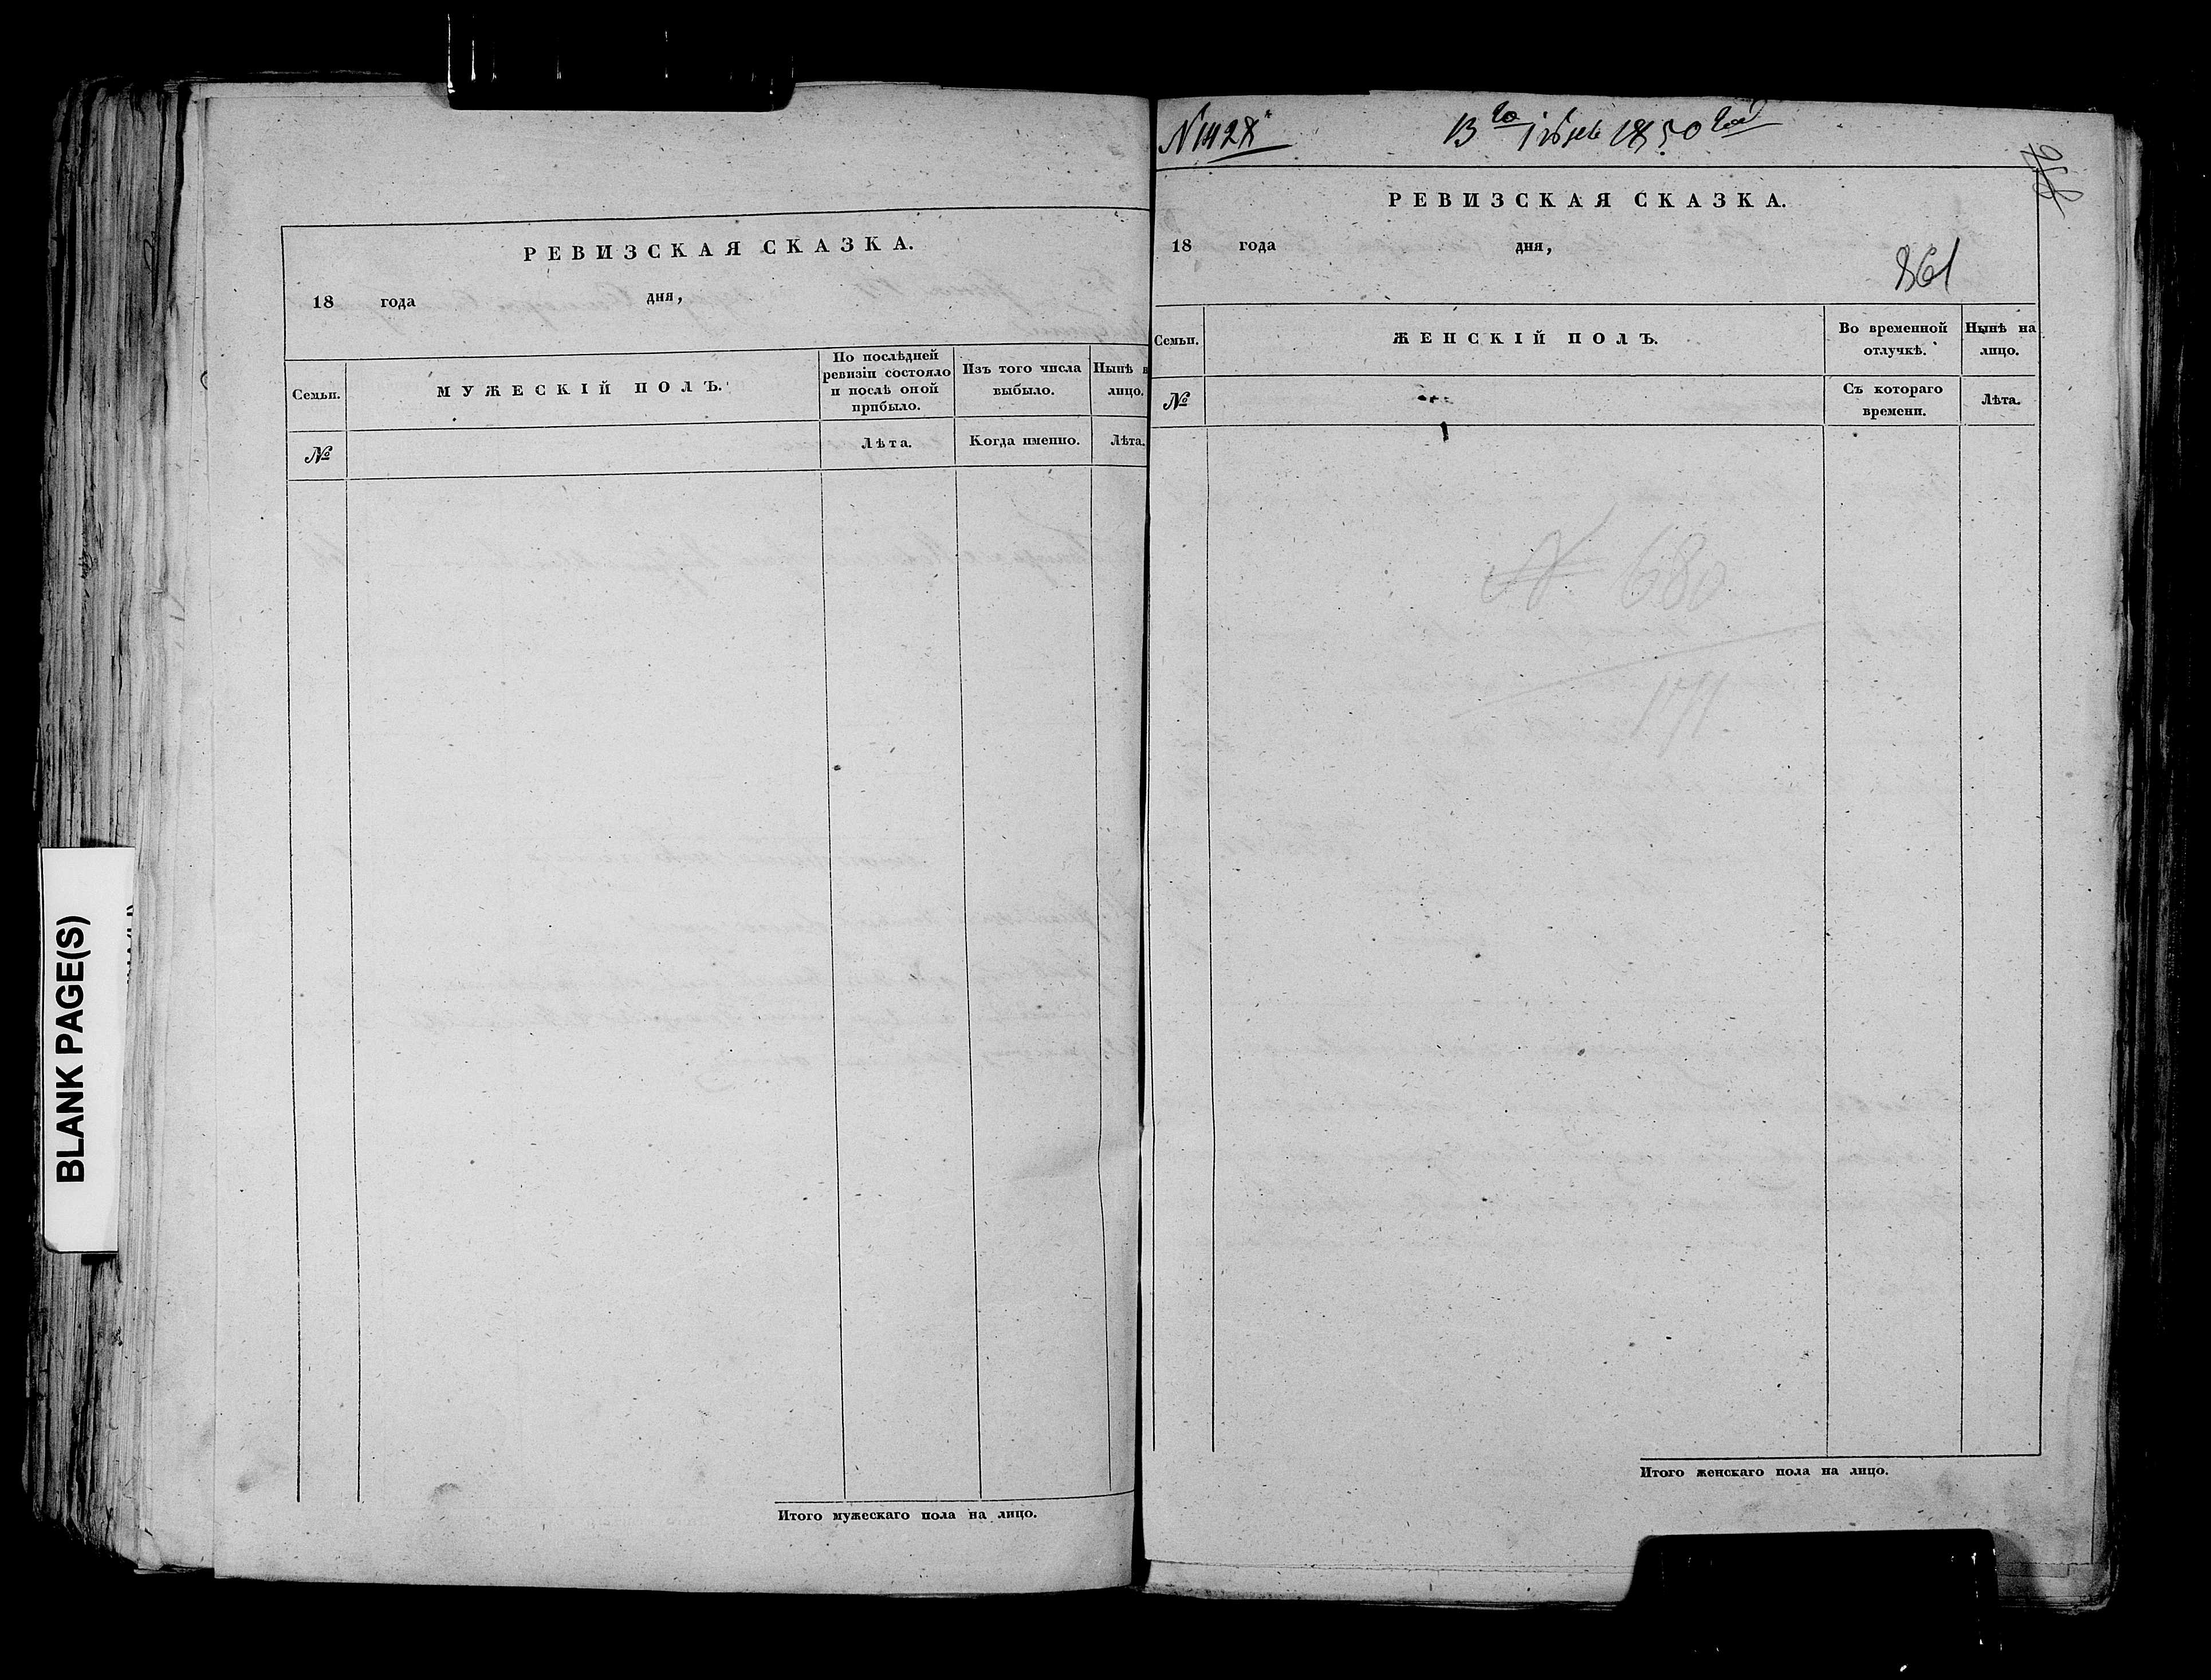 BLANK PAGE(S)
РЕВИЗСКАЯ СКАЗКА.
18 года дня,
Семьи.
МУЖЕСКІЙ ПОЛЪ.
По послѣдней
ревизіи состояло
и послѣ оной
прибыло.
Изъ того числа
выбыло.
Нынѣ
лицо.
№
Лѣта.
Когда именно.
Лѣта.
Итого мужескаго пола на лицо.
13го 1850
РЕВИЗСКАЯ СКАЗКА.
18 года дня,
861
Семьи.
ЖЕНСКІЙ ПОЛЪ.
Во временной
отлучкѣ.
Нынѣ на
лицо.
№
Съ котораго
времени.
Лѣта.
№ 680
Итого женскаго пола на лицо.